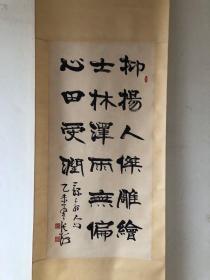 抑揚人傑雕繪
士林澤雨無偏
心田受潤
乙未